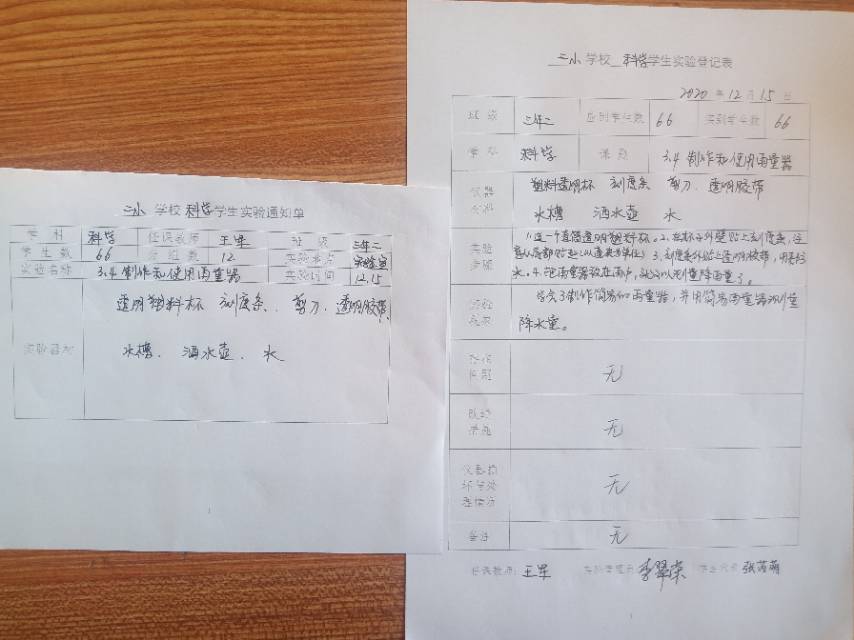 三小 学校 科学 学生实验通知单
学科 科学 任课教师 王军 班级 三年二
学生数 66 分组数 12 实验地点 实验室
实验名称 3.4 制作和使用雨量器 实验时间 12.15
透明塑料杯 刻度条、剪刀、透明胶带
实验器材
水槽、洒水壶、水
三小 学校 科学 学生实验登记表
2020 年 12 月 15 日
班级 三年二 应到学生数 66 实到学生数 66
学科 科学 课题 3.4 制作和使用雨量器
仪器 塑料透明杯 刻度条 剪刀、透明胶带
材料 水槽 洒水壶 水
1.选一个直筒透明塑料杯。2.在杯子外壁贴上刻度条,注
实验
步骤
3.刻度条外贴上透明胶带,
水。4.把雨量器放在雨中,就可以测量降雨量了。
实验 学会了制作简易的雨量器,并用简易雨量器测量
效果 降水量。
存在
问题 无
改进
措施 无
仪器损
坏与处
理情况 无
备注 无
任课教师: 王军 实验管理员 李翠荣 学生代表 张茜萌